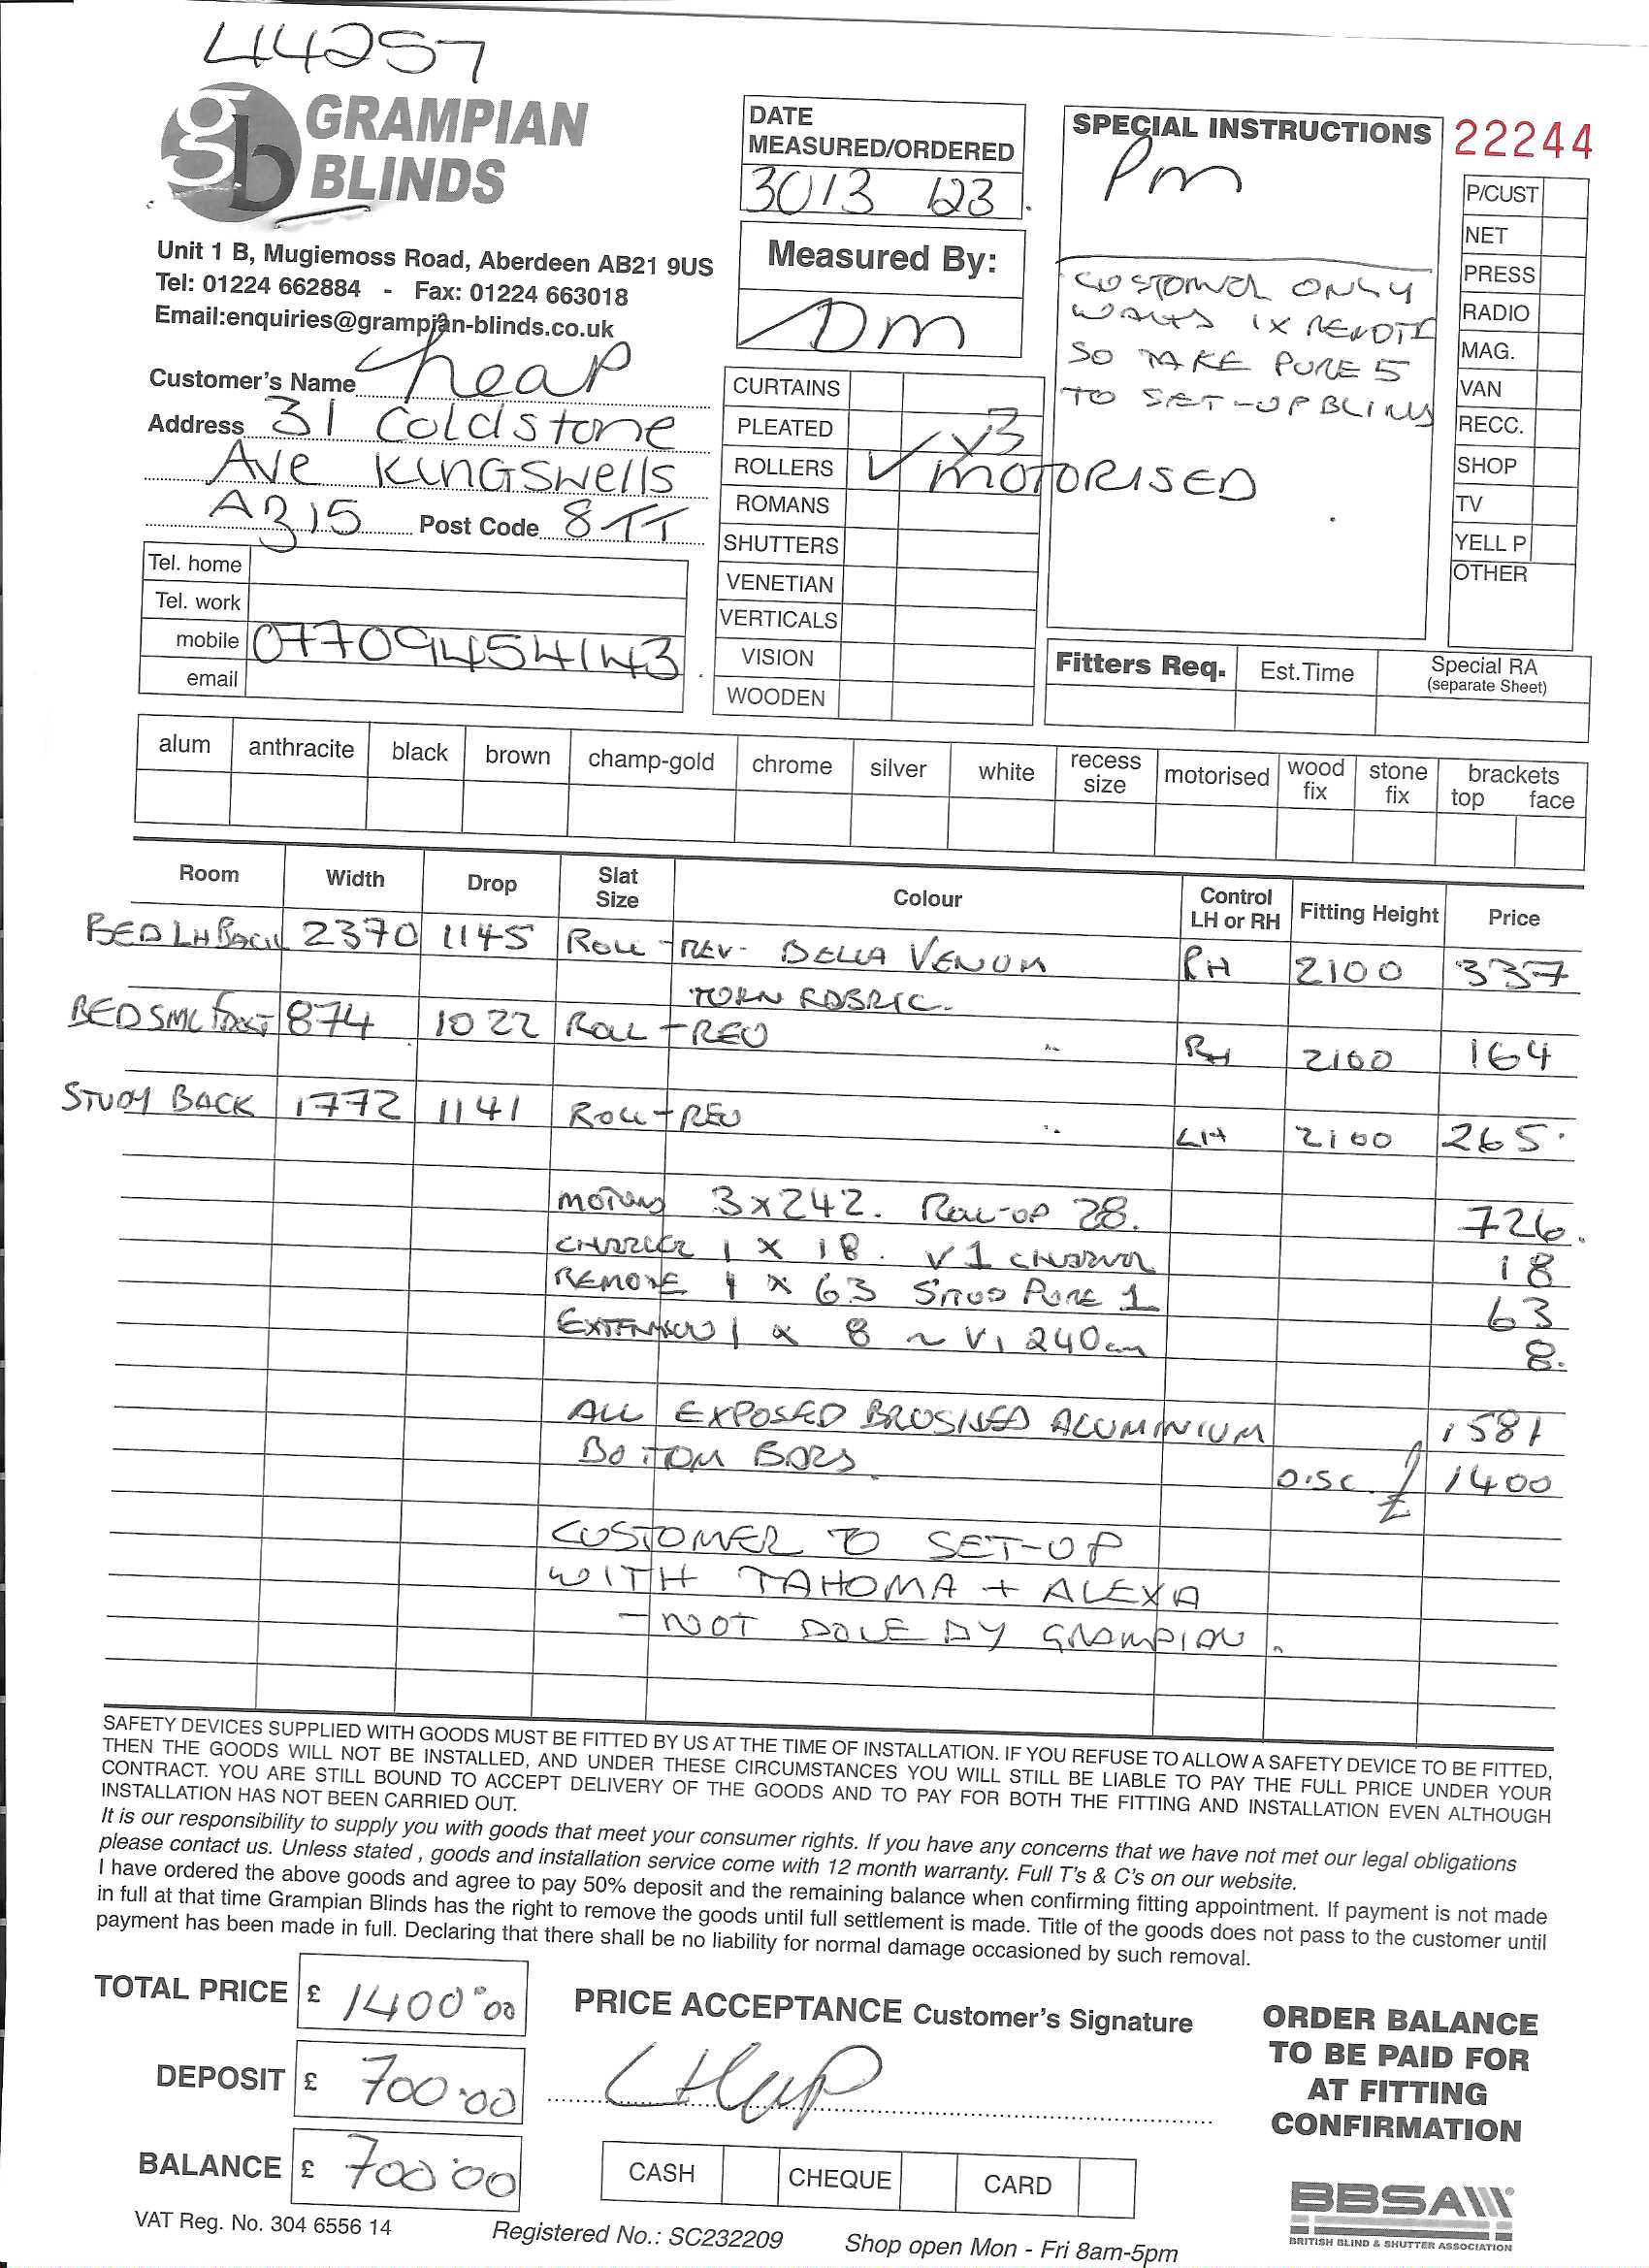 44257
GRAMPIAN
BLINDS
Unit 1 B, Mugiemoss Road, Aberdeen AB21 9US
Tel: 01224 662884 - Fax: 01224 663018
Email:enquiries@grampian-blinds.co.uk
Customer's Name Cheap
Address 31 Coldstone
Ave Kingswells
AB15 Post Code 8TT
Tel. home
Tel. work
mobile 07709454143
email
DATE
MEASURED/ORDERED
30/3 /23
Measured By:
DM
CURTAINS
PLEATED
ROLLERS ✓ x3 MOTORISED
ROMANS
SHUTTERS
VENETIAN
VERTICALS
VISION
WOODEN
SPECIAL INSTRUCTIONS
Pm
CUSTOMER ONLY
WANTS 1X REMOTE
SO TAKE PURE 5
TO SET-UP BLINDS
22244
P/CUST
NET
PRESS
RADIO
MAG.
VAN
RECC.
SHOP
TV
YELL P
OTHER
Fitters Req. Est.Time Special RA
(separate Sheet)
alum anthracite black brown champ-gold chrome silver white recess size motorised wood fix stone fix brackets top face
Room Width Drop Slat Size Colour Control LH or RH Fitting Height Price
BED LH BACK 2370 1145 ROLL-REV- BELLA VENUM RH 2100 337
TORN FABRIC.
BED SML FRONT 874 1022 ROLL-REV " RH 2100 164
STUDY BACK 1772 1141 ROLL-REV " LH 2100 265.
MOTORS 3x242. ROLL-UP 28. 726.
CHARGER 1 x 18. V1 CHARGER 18
REMOTE 1 x 63 SITUO PURE 1 63
EXTENSION 1 x 8 ~ V1 240cm 8.
ALL EXPOSED BRUSHED ALUMINIUM 1581
BOTTOM BARS. DISC. £ 1400
CUSTOMER TO SET-UP
WITH TAHOMA + ALEXA
-NOT DONE BY GRAMPIAN.
SAFETY DEVICES SUPPLIED WITH GOODS MUST BE FITTED BY US AT THE TIME OF INSTALLATION. IF YOU REFUSE TO ALLOW A SAFETY DEVICE TO BE FITTED,
THEN THE GOODS WILL NOT BE INSTALLED, AND UNDER THESE CIRCUMSTANCES YOU WILL STILL BE LIABLE TO PAY THE FULL PRICE UNDER YOUR
CONTRACT. YOU ARE STILL BOUND TO ACCEPT DELIVERY OF THE GOODS AND TO PAY FOR BOTH THE FITTING AND INSTALLATION EVEN ALTHOUGH
INSTALLATION HAS NOT BEEN CARRIED OUT.
It is our responsibility to supply you with goods that meet your consumer rights. If you have any concerns that we have not met our legal obligations
please contact us. Unless stated , goods and installation service come with 12 month warranty. Full T's & C's on our website.
I have ordered the above goods and agree to pay 50% deposit and the remaining balance when confirming fitting appointment. If payment is not made
in full at that time Grampian Blinds has the right to remove the goods until full settlement is made. Title of the goods does not pass to the customer until
payment has been made in full. Declaring that there shall be no liability for normal damage occasioned by such removal.
TOTAL PRICE £ 1400.00
DEPOSIT £ 700.00
BALANCE £ 700.00
PRICE ACCEPTANCE Customer's Signature
CASH CHEQUE CARD
ORDER BALANCE
TO BE PAID FOR
AT FITTING
CONFIRMATION
BBSA
BRITISH BLIND & SHUTTER ASSOCIATION
VAT Reg. No. 304 6556 14 Registered No.: SC232209 Shop open Mon - Fri 8am-5pm